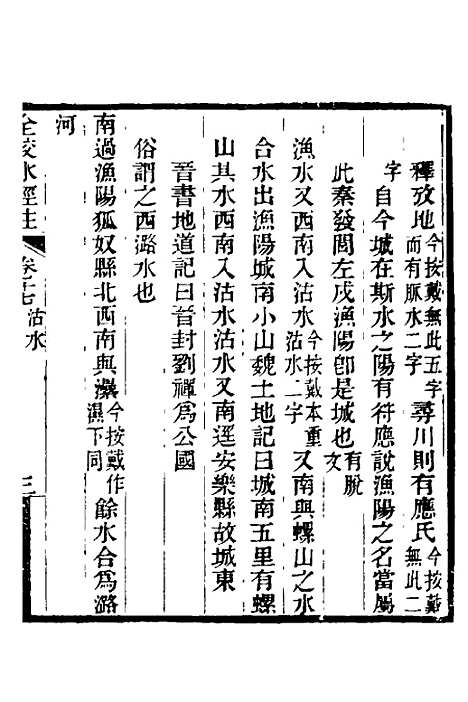 釋攷地今按戴無此五字而有脈水二字尋川則有應氏今按戴無此二
字自今城在斯水之陽有符應說漁陽之名當屬
此秦發閭左戍漁陽卽是城也有脫文
漁水又西南入沽水今按戴本重沽水二字又南與螺山之水
合水出漁陽城南小山魏土地記曰城南五里有螺
山其水西南入沽水沽水又南逕安樂縣故城東
晉書地道記曰晉封劉禪爲公國
俗謂之西潞水也
南過漁陽狐奴縣北西南與濕今按戴作濕下同餘水合爲潞
河
全校水經注
卷十四
沽水
三